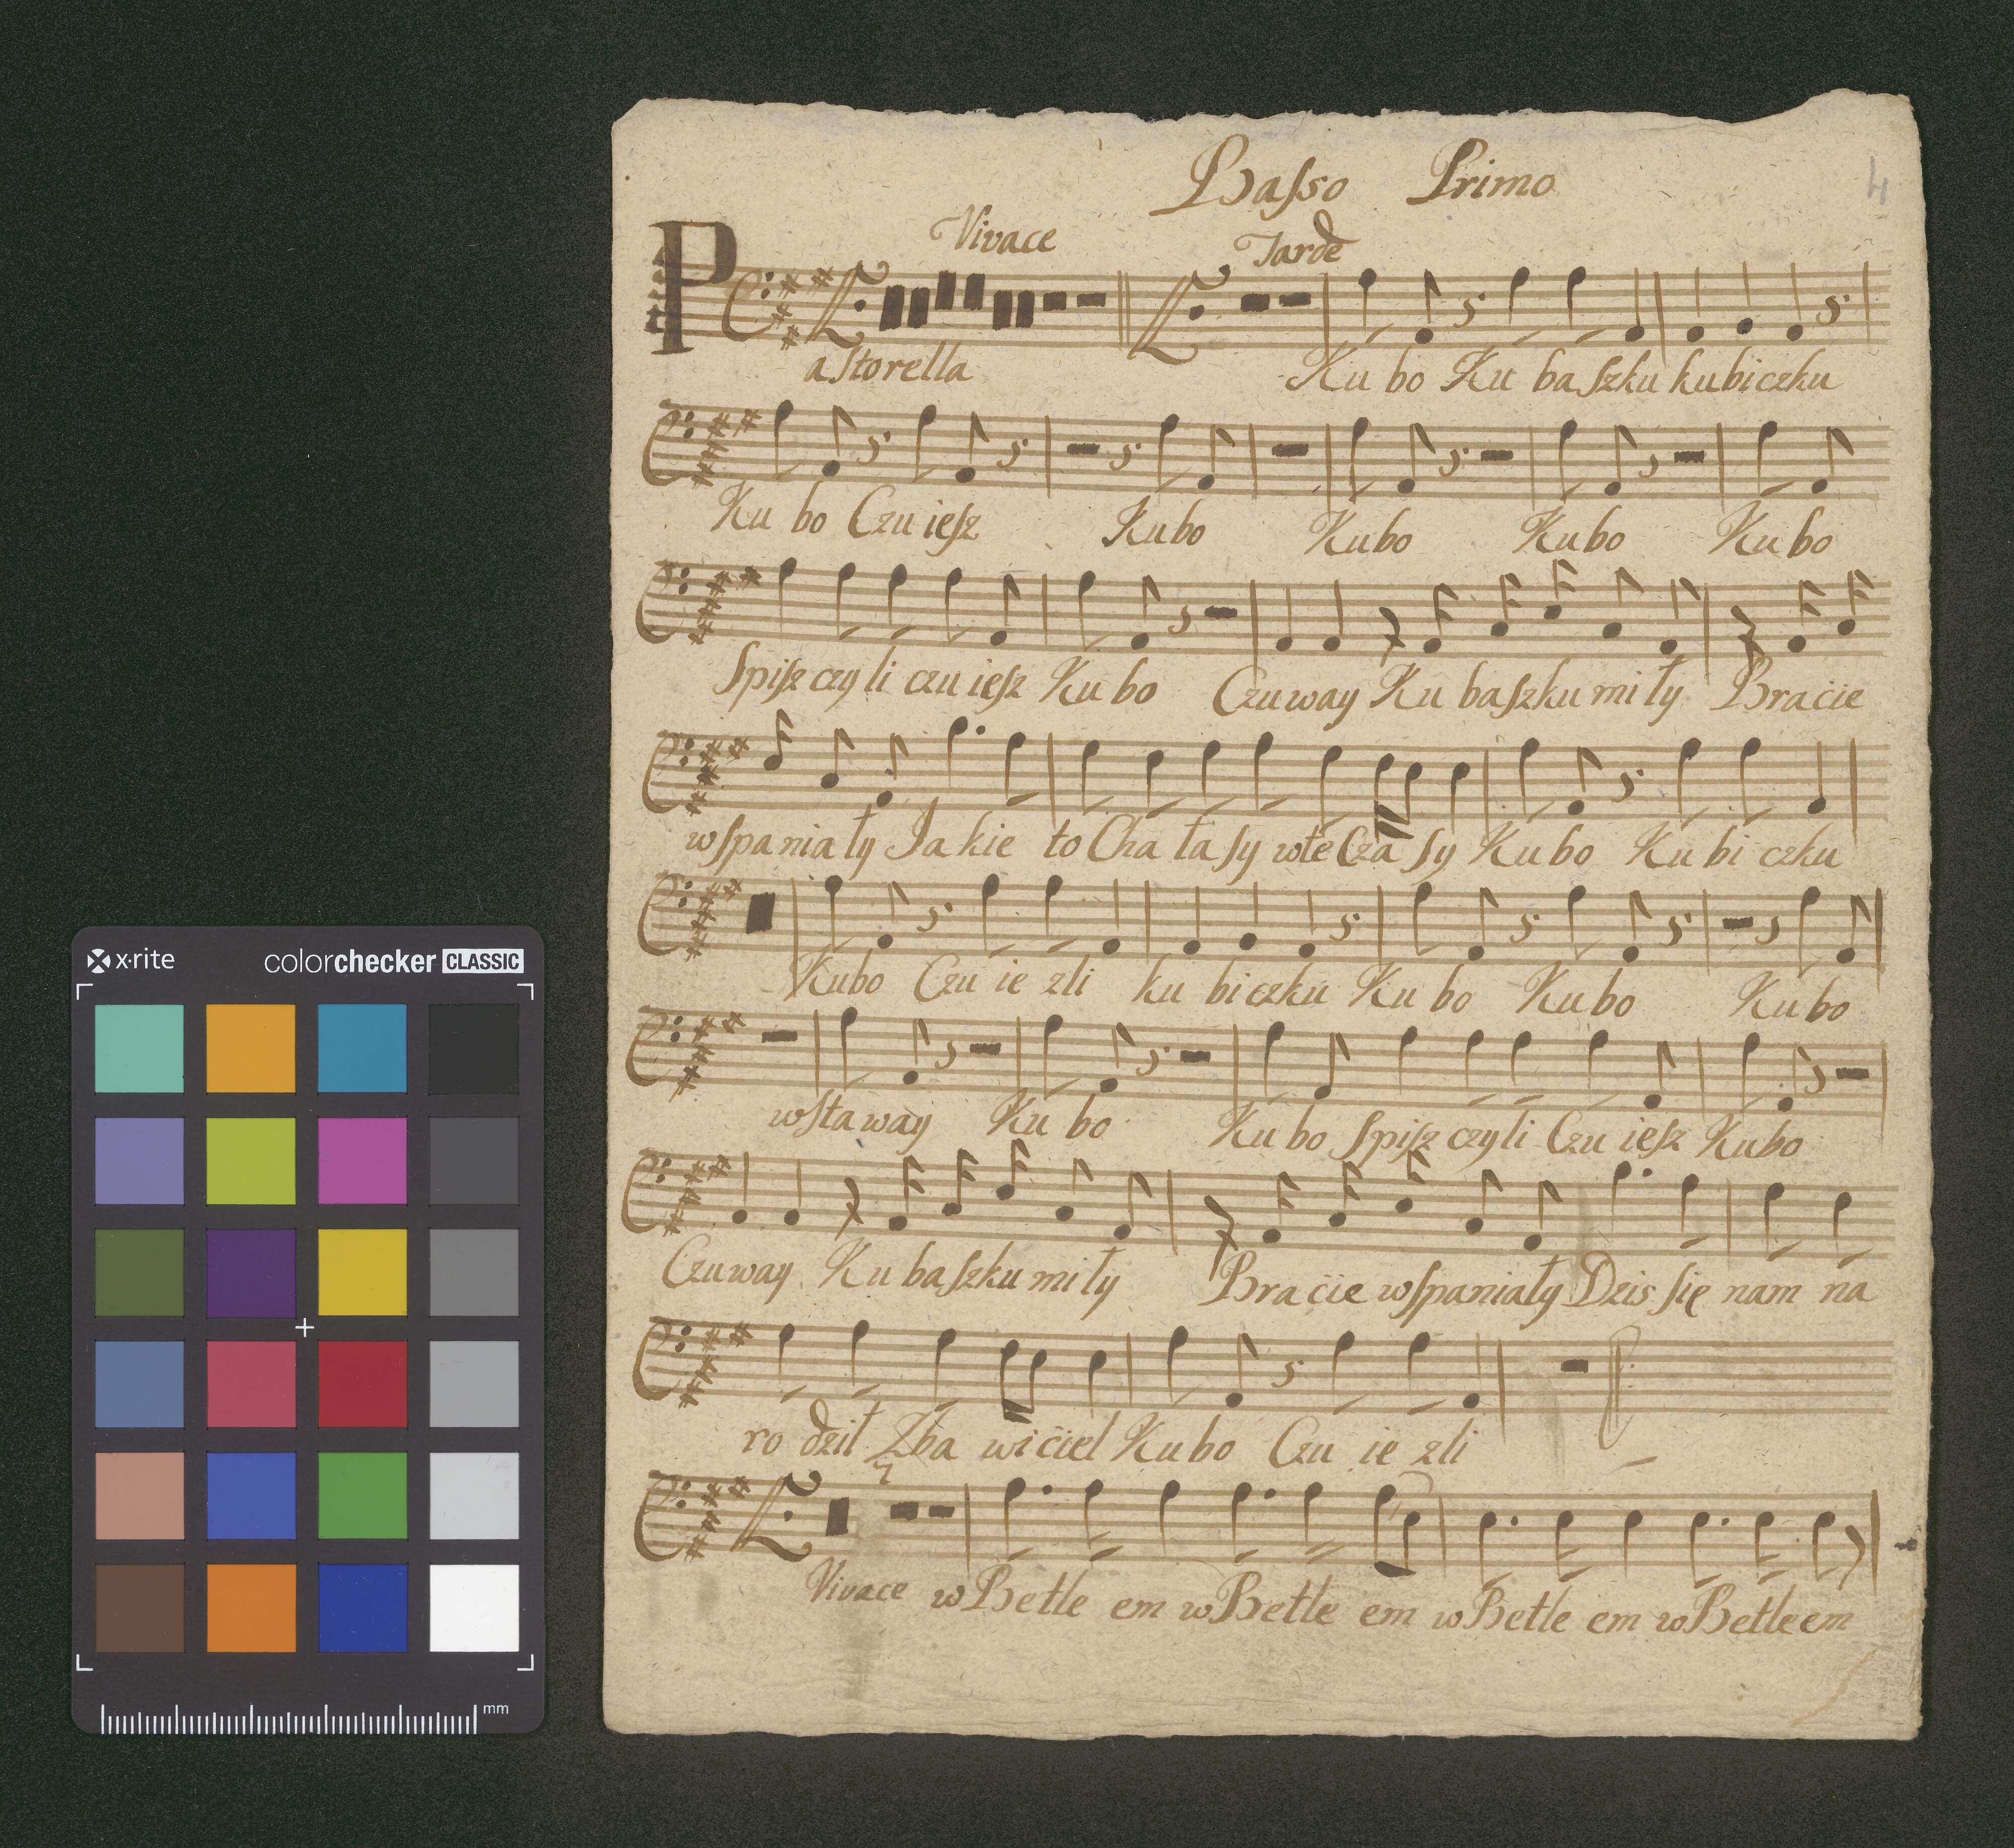 Basso Primo
4
Vivace Tarde
Pastorella Ku bo Ku ba szku kubiczku
Ku bo Czu iesz Kubo Kubo Kubo Kubo
Spisz czy li czu iesz Ku bo Czuway Ku baszku mi ły Bracie
wspania ły Jakie to Cha ła sy wte Cza sy Ku bo Ku bi czku
Kubo Czu ie zli ku biczku Ku bo Ku bo Ku bo
wstaway Ku bo Ku bo spisz czyli Czu iesz Kubo
Czuway Ku baszku miły Bracie wspaniały Dzis się nam na
ro dził Zba wiciel Ku bo Czu ie zli
Vivace w Betle em w Betle em w Betle em w Betleem
x·rite colorchecker CLASSIC
mm